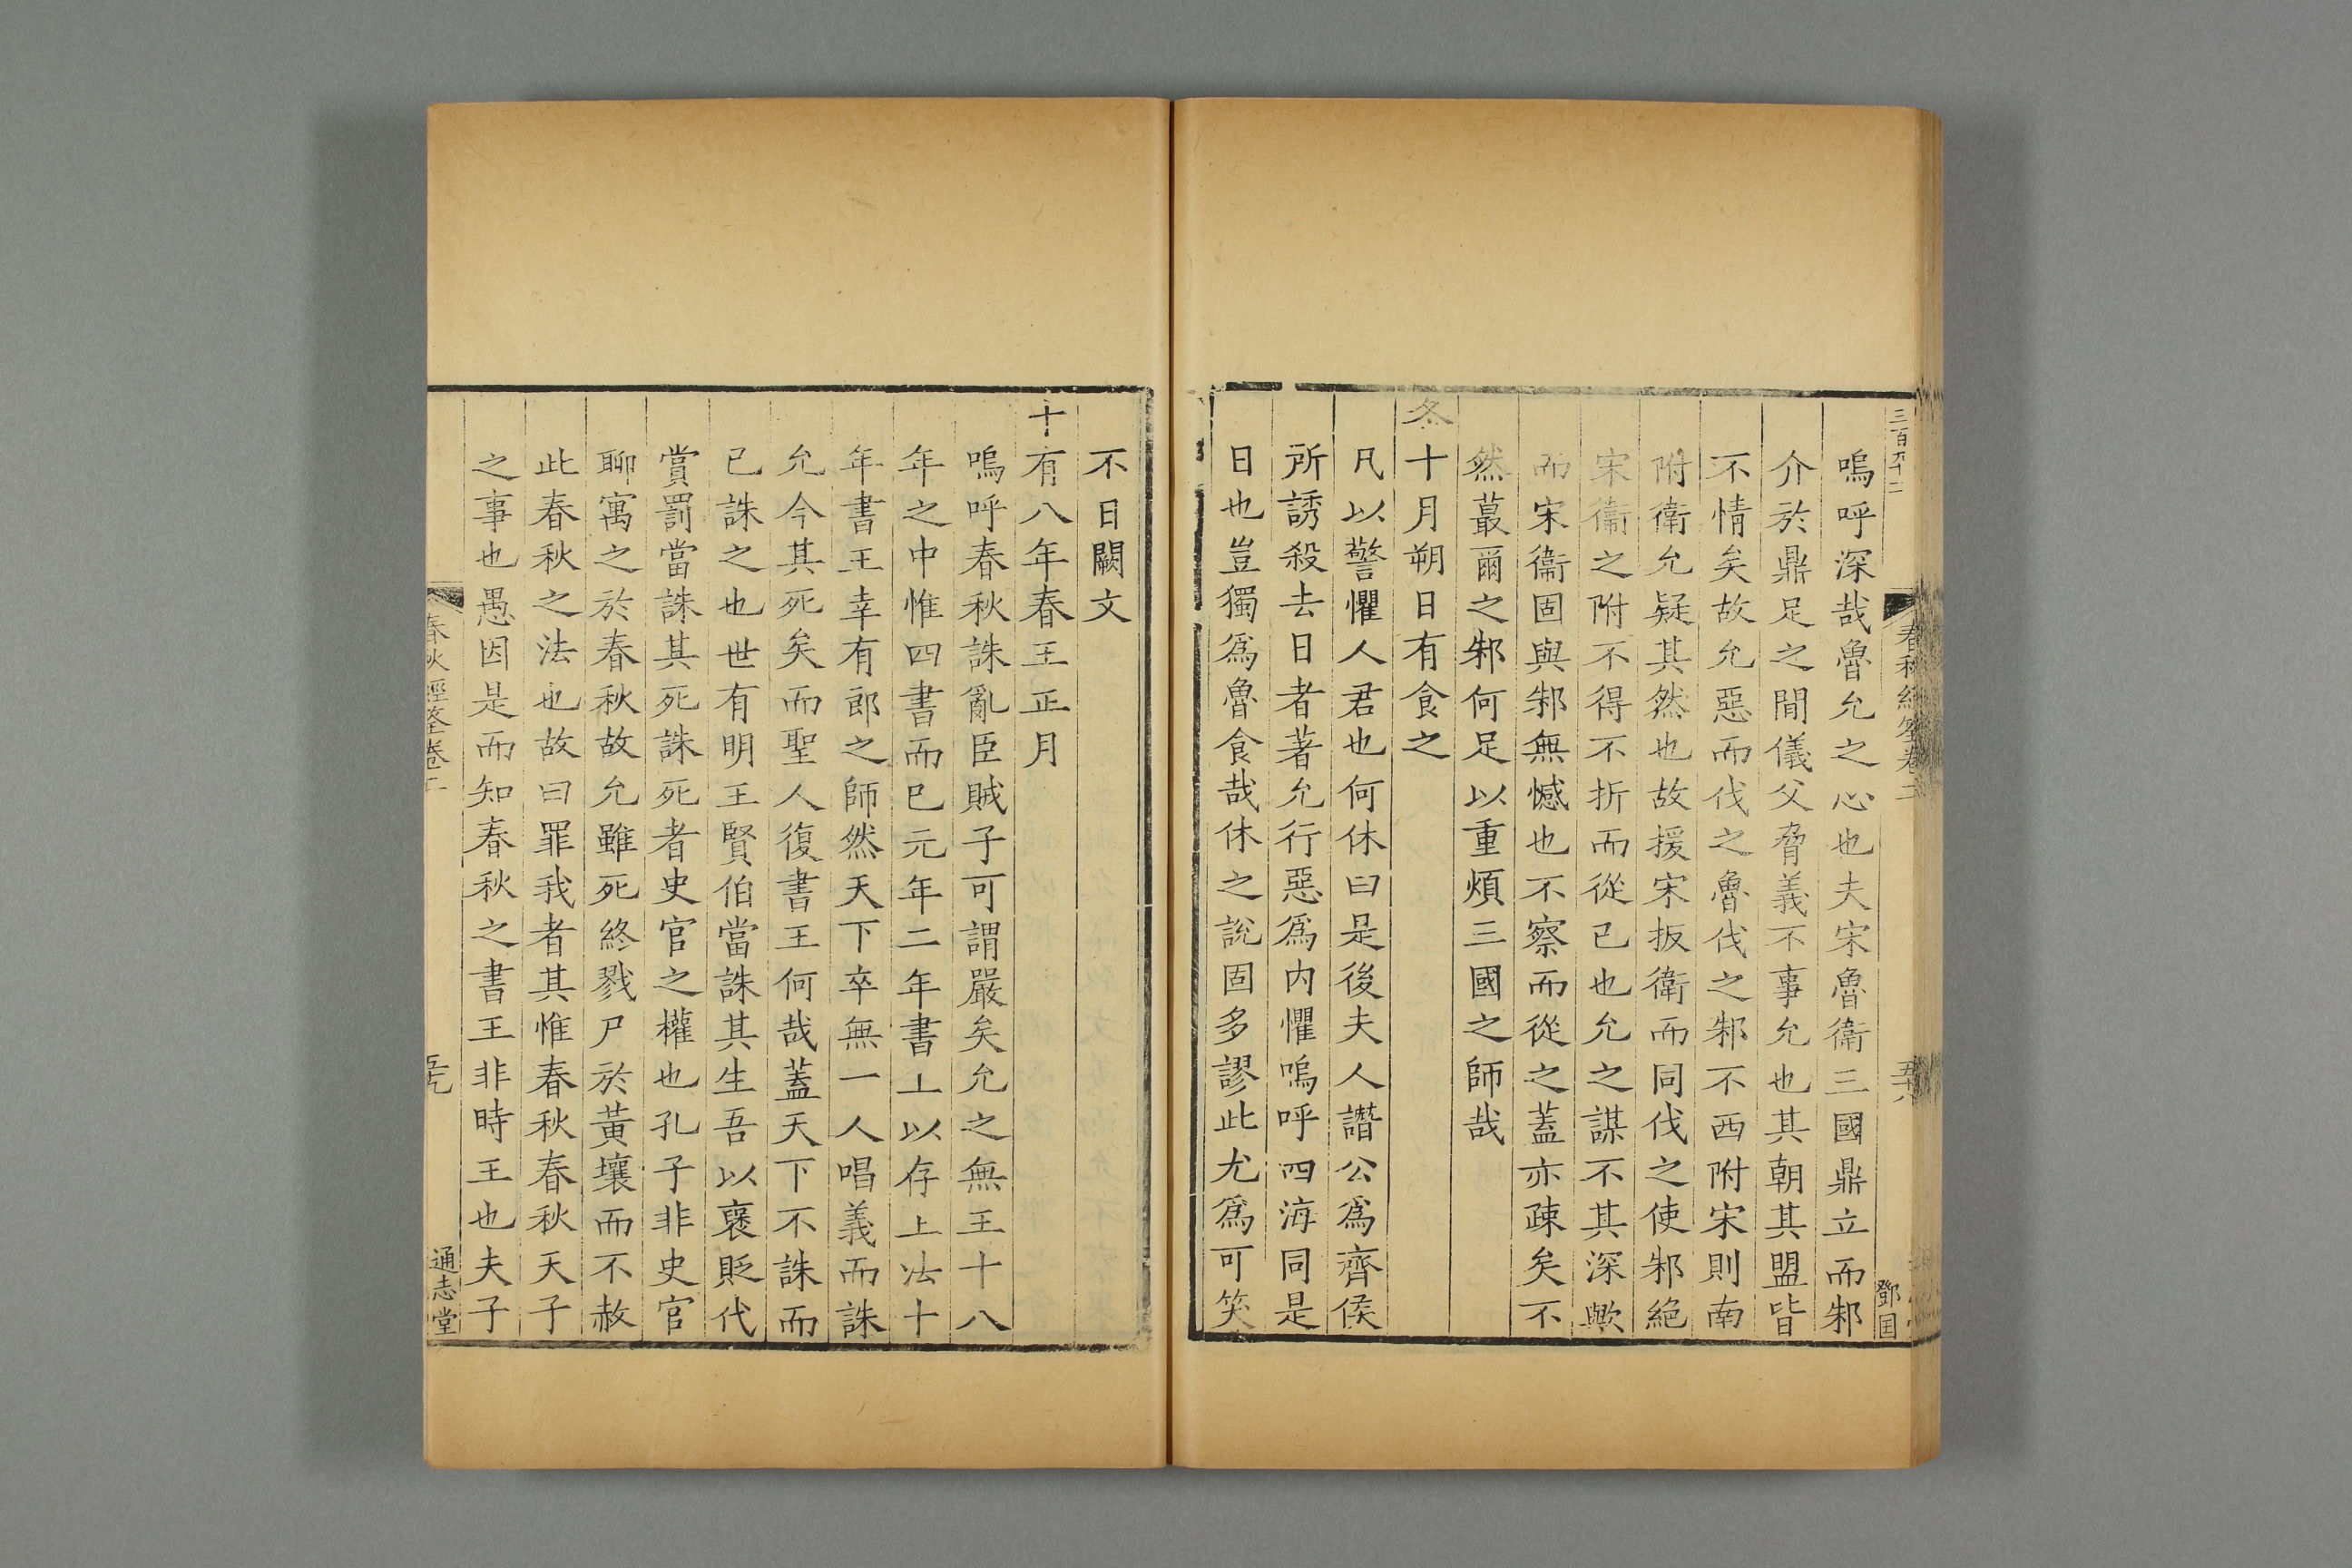 三百九十二
春秋經筌卷二
五十八
鄧国
嗚呼深哉魯允之心也夫宋魯衛三國鼎立而邾
介於鼎足之間儀父脅義不事允也其朝其盟皆
不情矣故允惡而伐之魯伐之邾不西附宋則南
附衛允疑其然也故援宋扳衛而同伐之使邾絶
宋衞之附不得不折而從已也允之謀不其深歟
而宋衞固與邾無憾也不察而從之蓋亦疎矣不
然蕞爾之邾何足以重煩三國之師哉
冬十月朔日有食之
凡以警懼人君也何休曰是後夫人譖公爲齊侯
所誘殺去日者著允行惡爲内懼嗚呼四海同是
日也豈獨爲魯食哉休之說固多謬此尤爲可笑
不日闕文
十有八年春王正月
嗚呼春秋誅亂臣賊子可謂嚴矣允之無王十八
年之中惟四書而已元年二年書上以存上法十
年書王幸有郎之師然天下卒無一人唱義而誅
允今其死矣而聖人復書王何哉蓋天下不誅而
已誅之也世有明王賢伯當誅其生吾以襃貶代
賞罰當誅其死誅死者史官之權也孔子非史官
聊寓之於春秋故允雖死終戮尸於黃壤而不赦
此春秋之法也故曰罪我者其惟春秋春秋天子
之事也愚因是而知春秋之書王非時王也夫子
春秋經筌卷二
五十九
通志堂